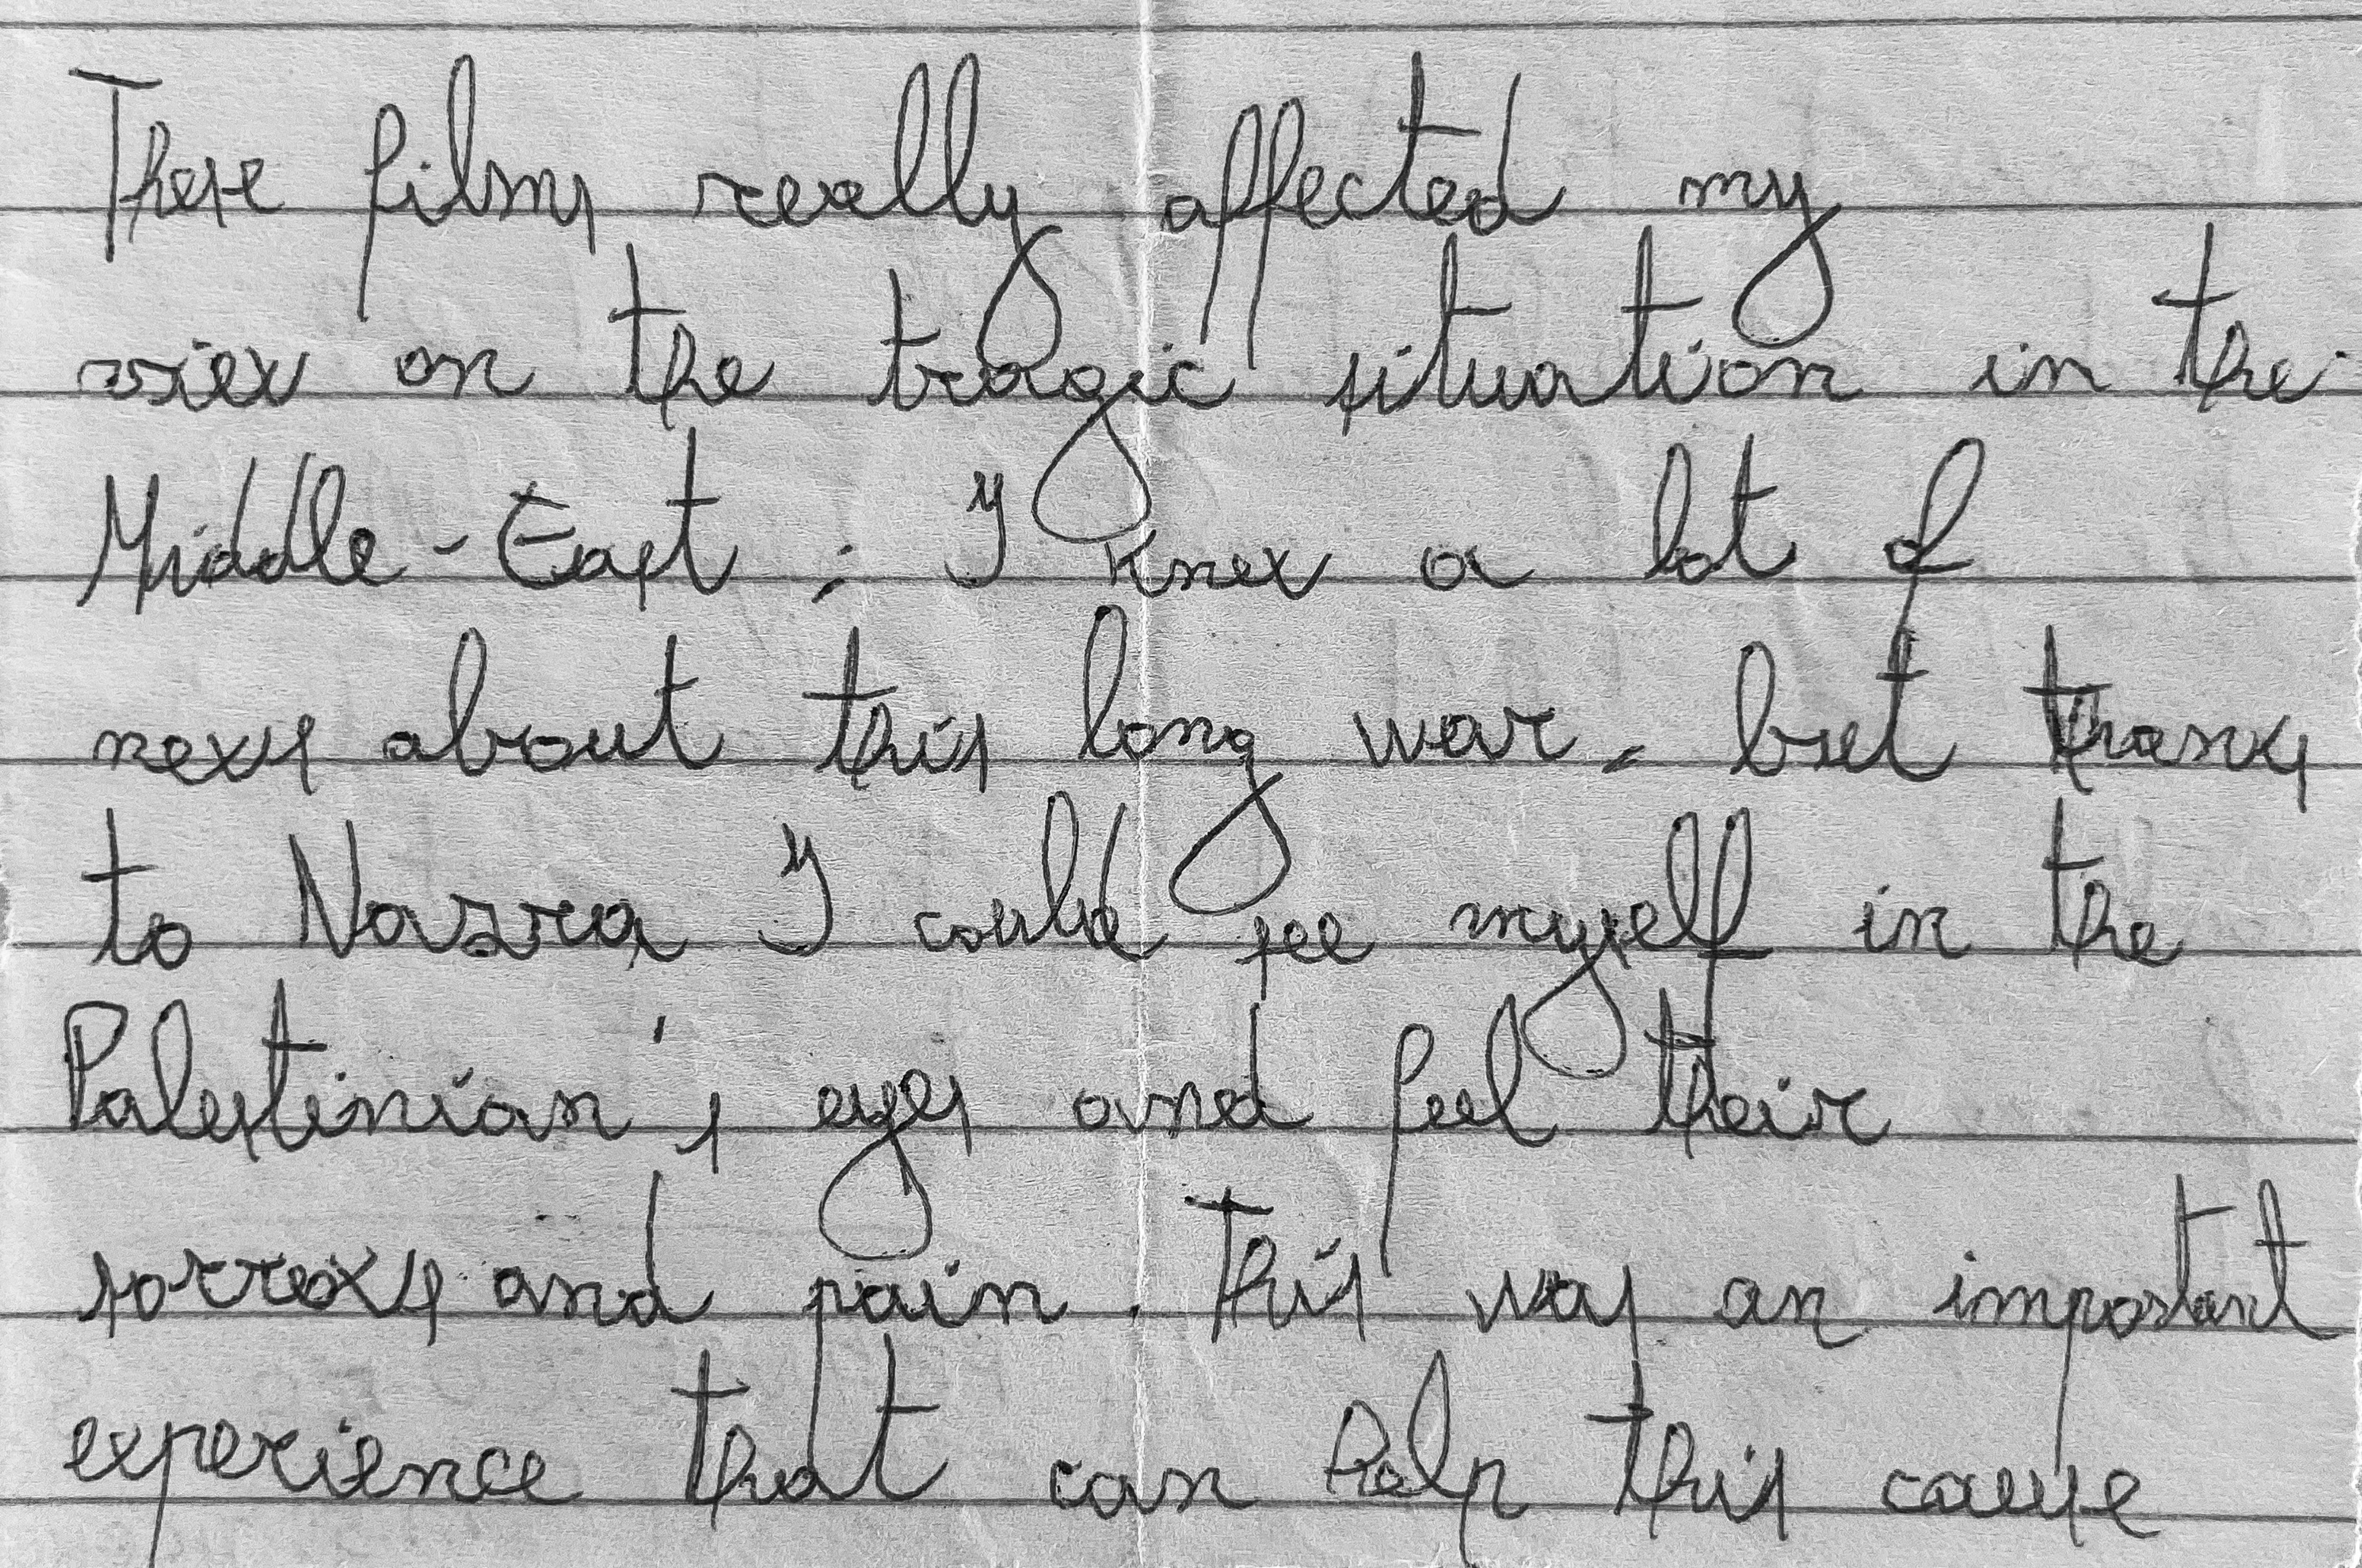 These films really affected my
view on the tragic situation in the
Middle-East; I knew a lot of
news about this long war, but thanks
to Nazra I could see myself in the
Palestinian's eyes and feel their
sorrows and pain. This was an important
experience that can help this cause